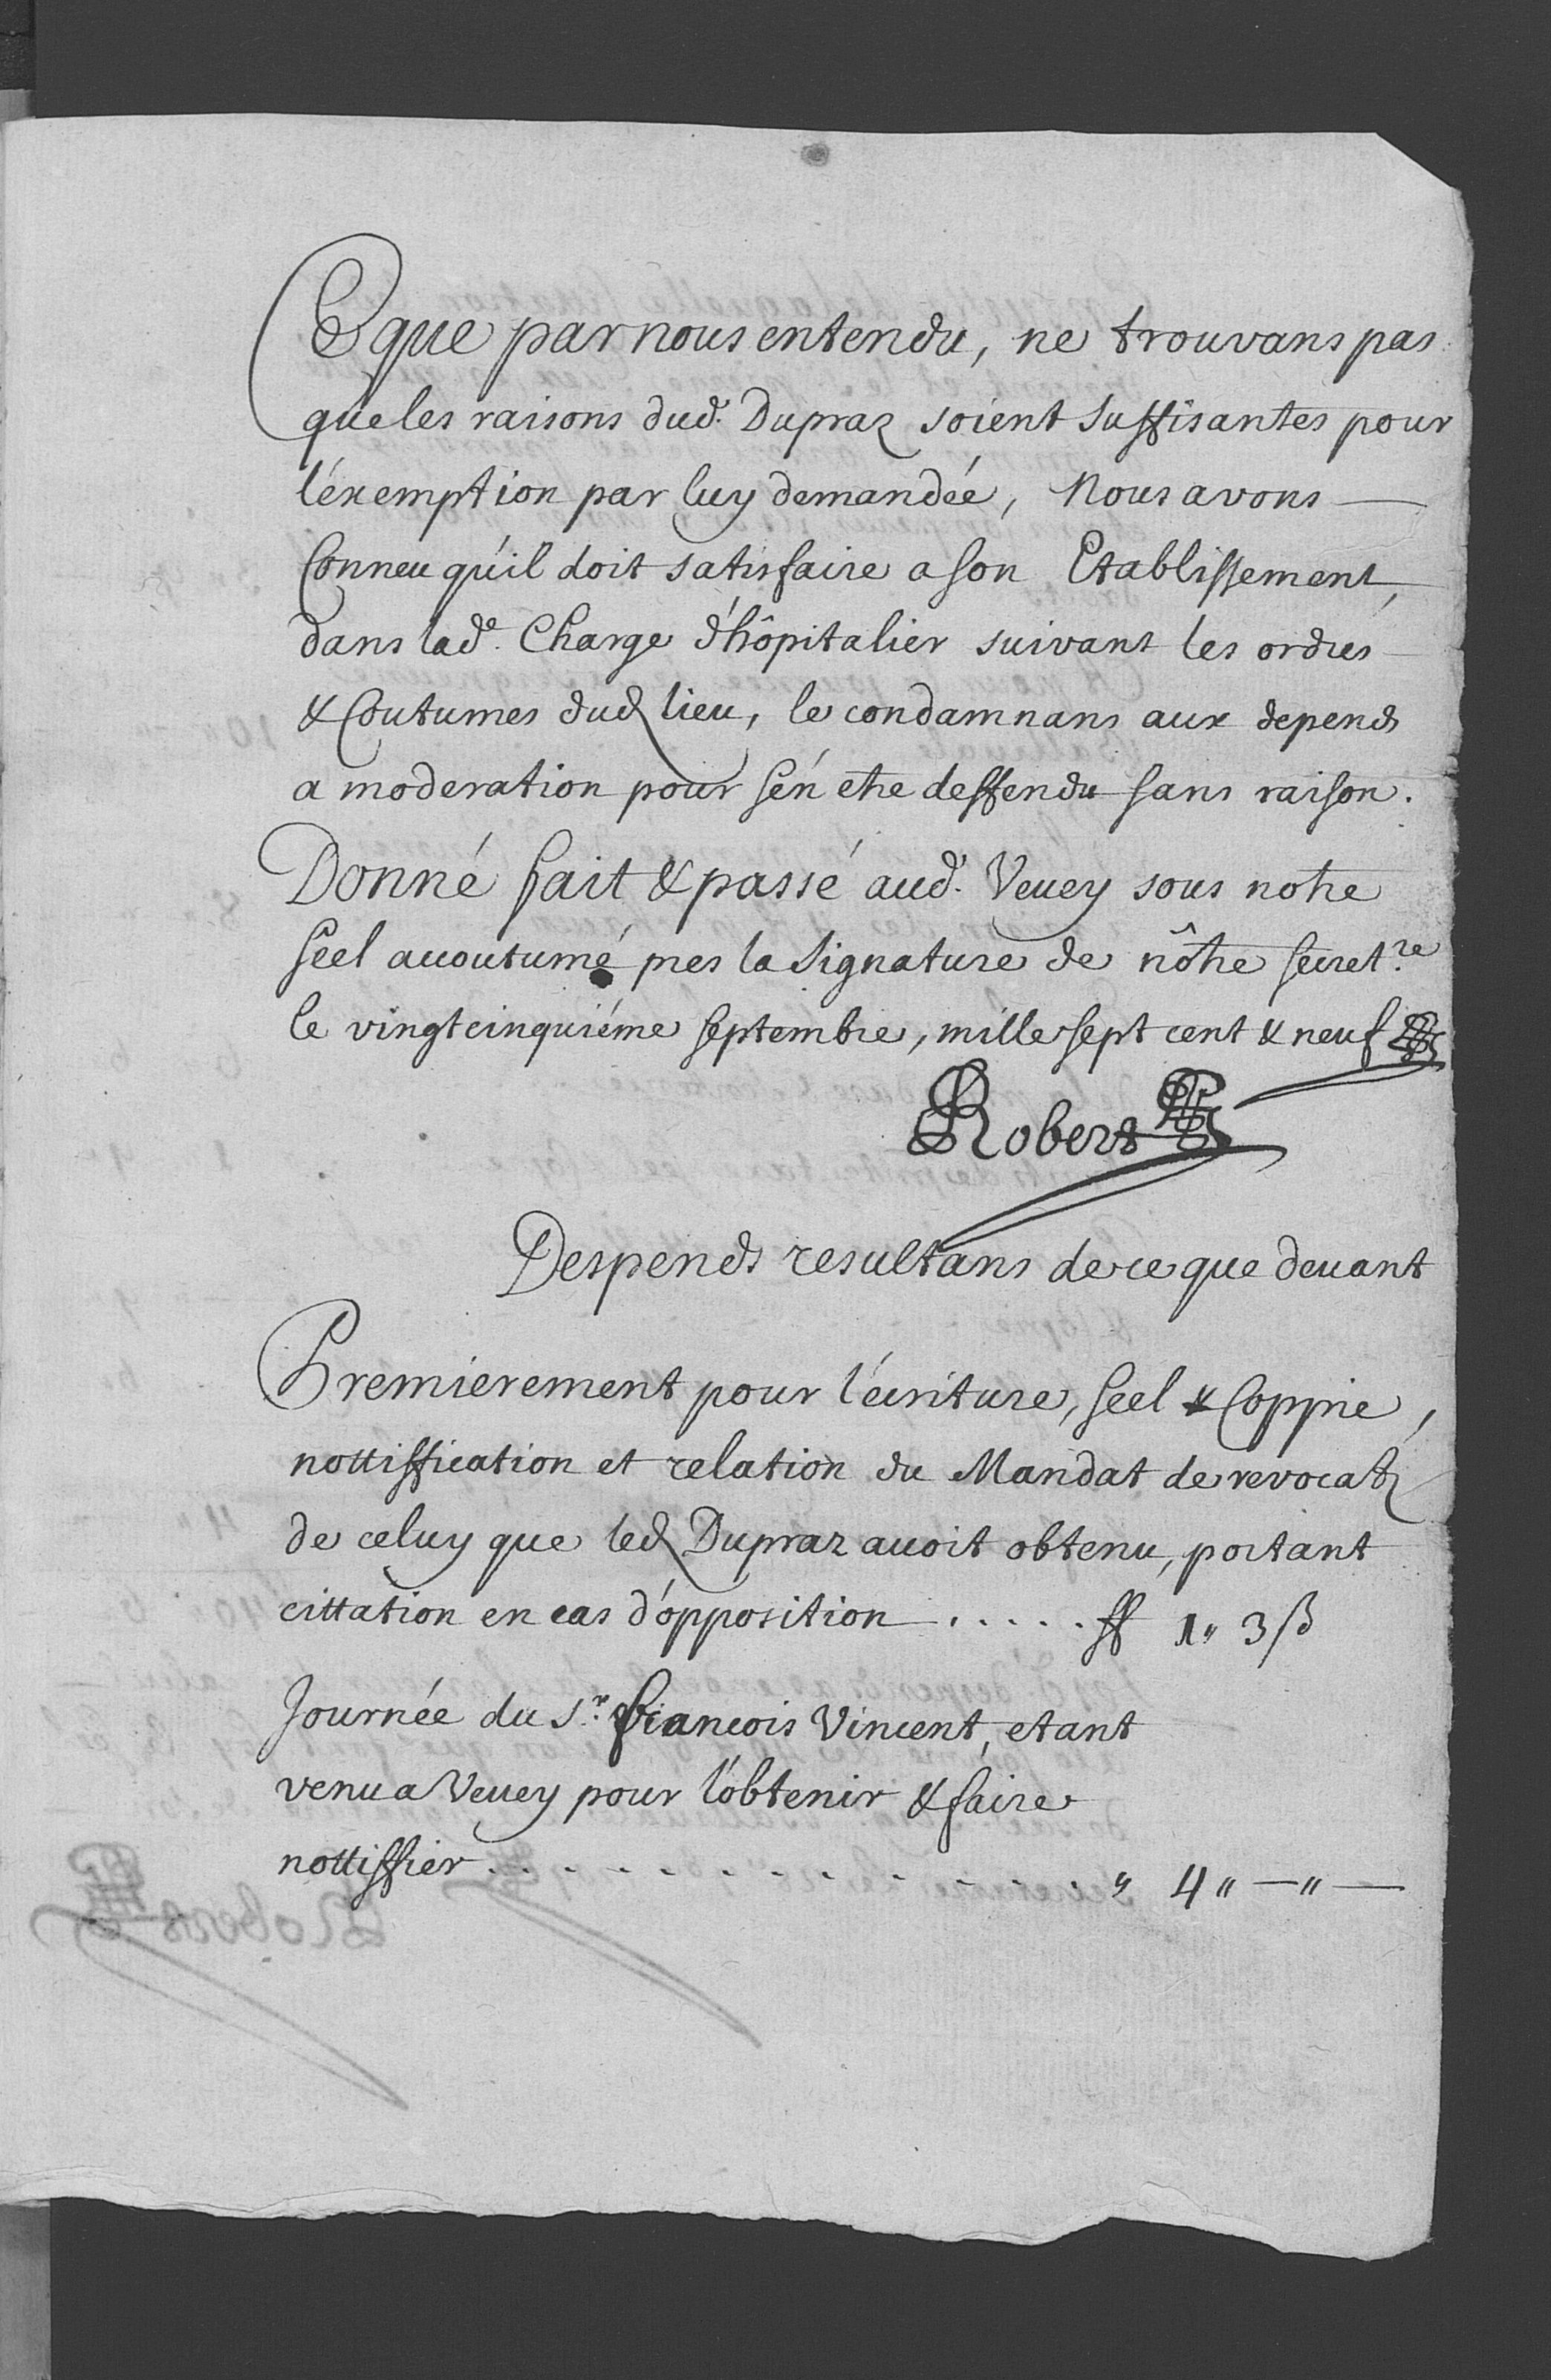 Ce que par nous entendu, ne trouvans pas
que les raisons dud. Dupraz soient suffisantes pour
l'éxemption par luy demandéé, Nous avons
Conneu qu'il doit satisfaire a son Etablissement,
dans lad.e Charge d'hôpitalier suivant les ordres
& Coutumes dud lieu, le condamnans aux depends
a moderation pour s'én etre deffendu sans raison.
Donné fait & passé aud. Vevey sous notre
seel accoutumé pres la signature de nôtre secret.re
le vingtcinquiéme septembre, mille sept cent & neuf
Robert
Despends resultans de ce que devant
Premierement pour l'écriture, seel & Coppie,
nottiffication et relation du Mandat de revocat
de celuy que led Dupraz avoit obtenu, portant
cittation en cas d'opposition ..... ff 1" 3 ß
Journée du S.r francois Vincent, etant
venu a Vevey pour l'obtenir & faire
nottiffier ............. " 4 " — " —